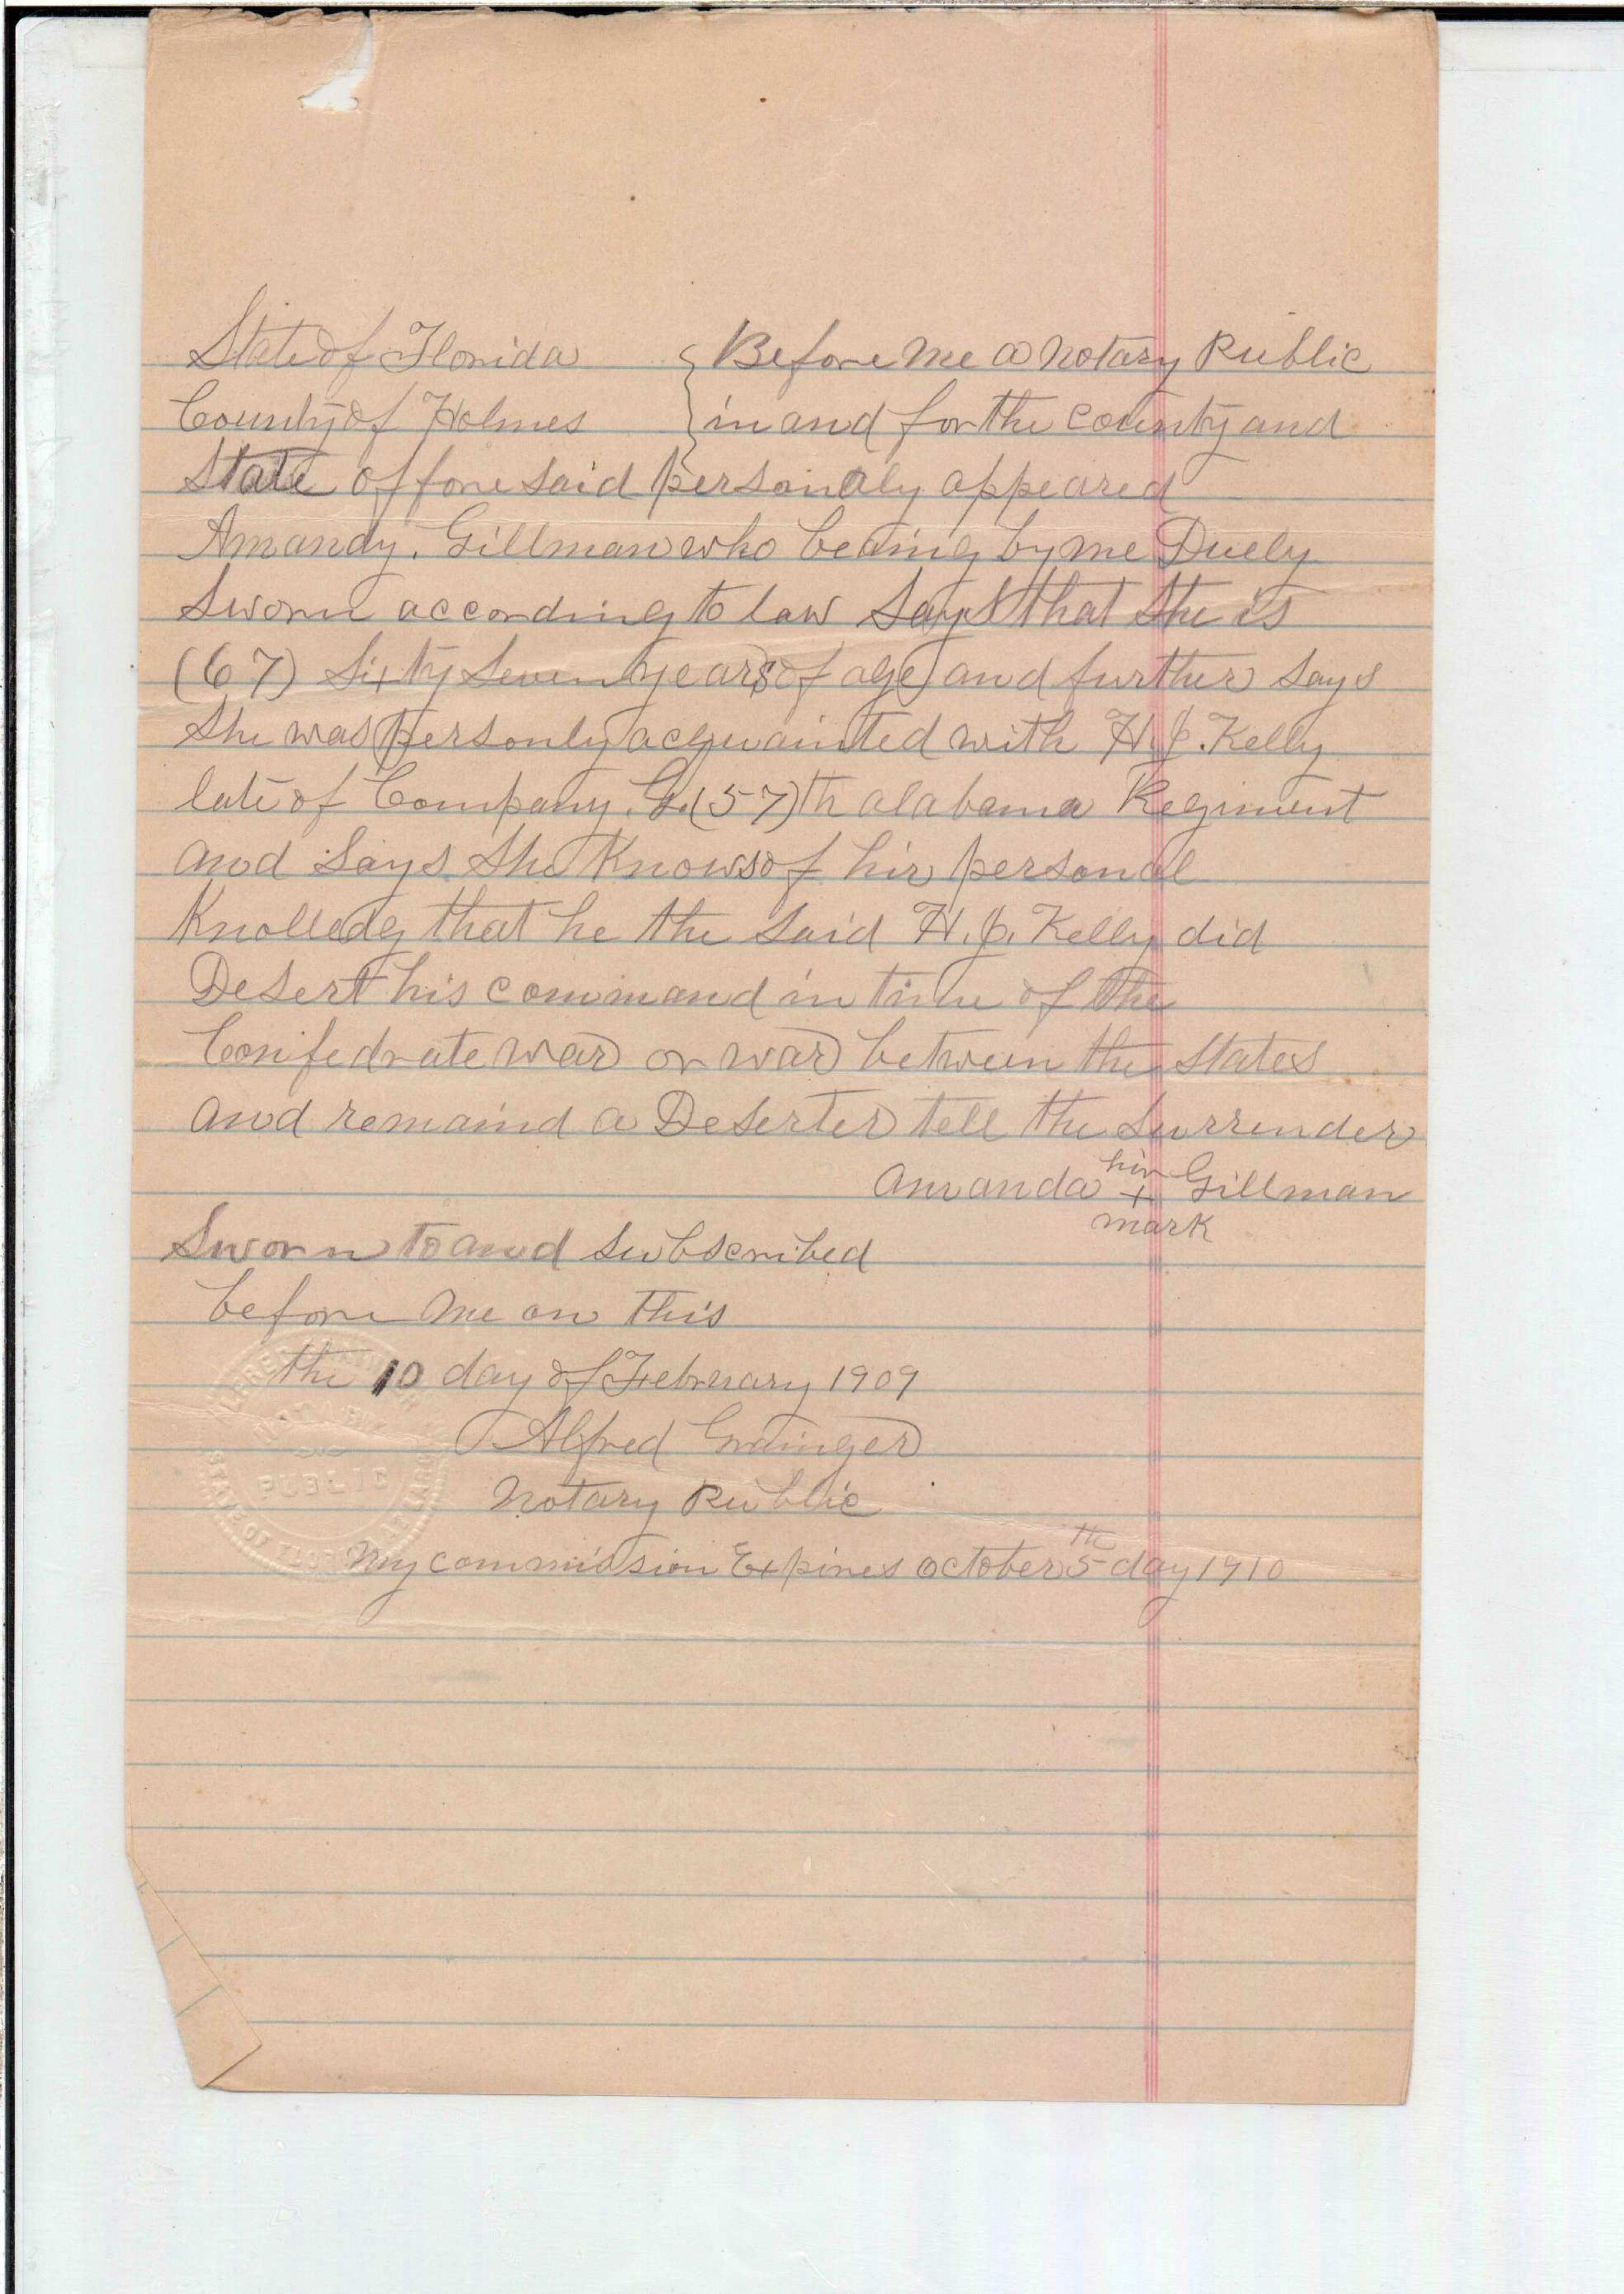 State of Florida { Before me a notary Public
County of Holmes } in and for the county and
State offore said personaly appeared
Amandy. Gillman who being by me Duely
Sworn according to law Says that She is
(67) Sixty Seven years of age and further Says
She was personly acquainted with H. J. Kelly
late of Company. G. (57)th alabama Regiment
and Says She Knows of hir personal
Knolledg that he the Said H. J. Kelly did
Desert his command in time of the
Confedrate war or war between the States
and remaind a Deserter tell the Surrender
hir
Amanda + Gillman
mark
Sworn to and Subscribed
before me on this
the 10 day of February 1909
Alfred Grainger
Notary Public
My commission Expires October 5th day 1910
NOTARY
PUBLIC
STATE OF FLORIDA AT LARGE